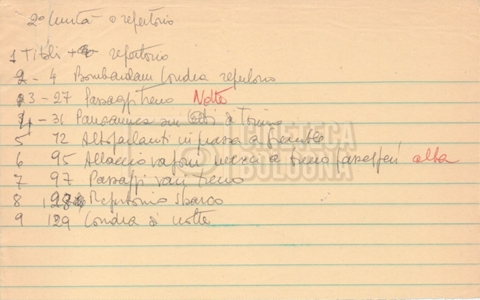 2ª unità o repertorio
1 Titoli + repertorio
2 - 4 Bombardam Londra repertorio
3 - 27 Passaggi treno Notte
4 - 31 Panoramica su di Torino
5 72 Altoparlanti in piazza
6 95 Allaccio vagoni merci a treno passeggeri alba
7 97 Passaggi vari treno
8 Repertorio sbarco
9 129 Londra notte
CINETECA
BOLOGNA